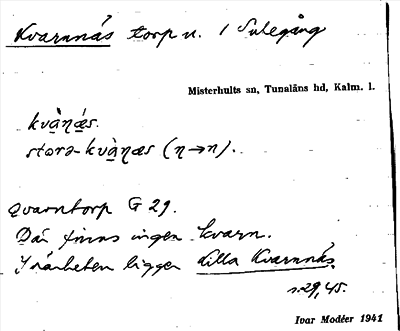 Kvarnnäs torp u. 1 Sulegång
Misterhults sn, Tunaläns hd, Kalm. l.
kvàɳǽs.
stora-kvàɳæs (ɳ→n).
Qvarntorp G 29.
Där finns ingen kvarn.
I närheten ligger Lilla Kvarnnäs.
s. 29, 45.
Ivar Modéer 1941